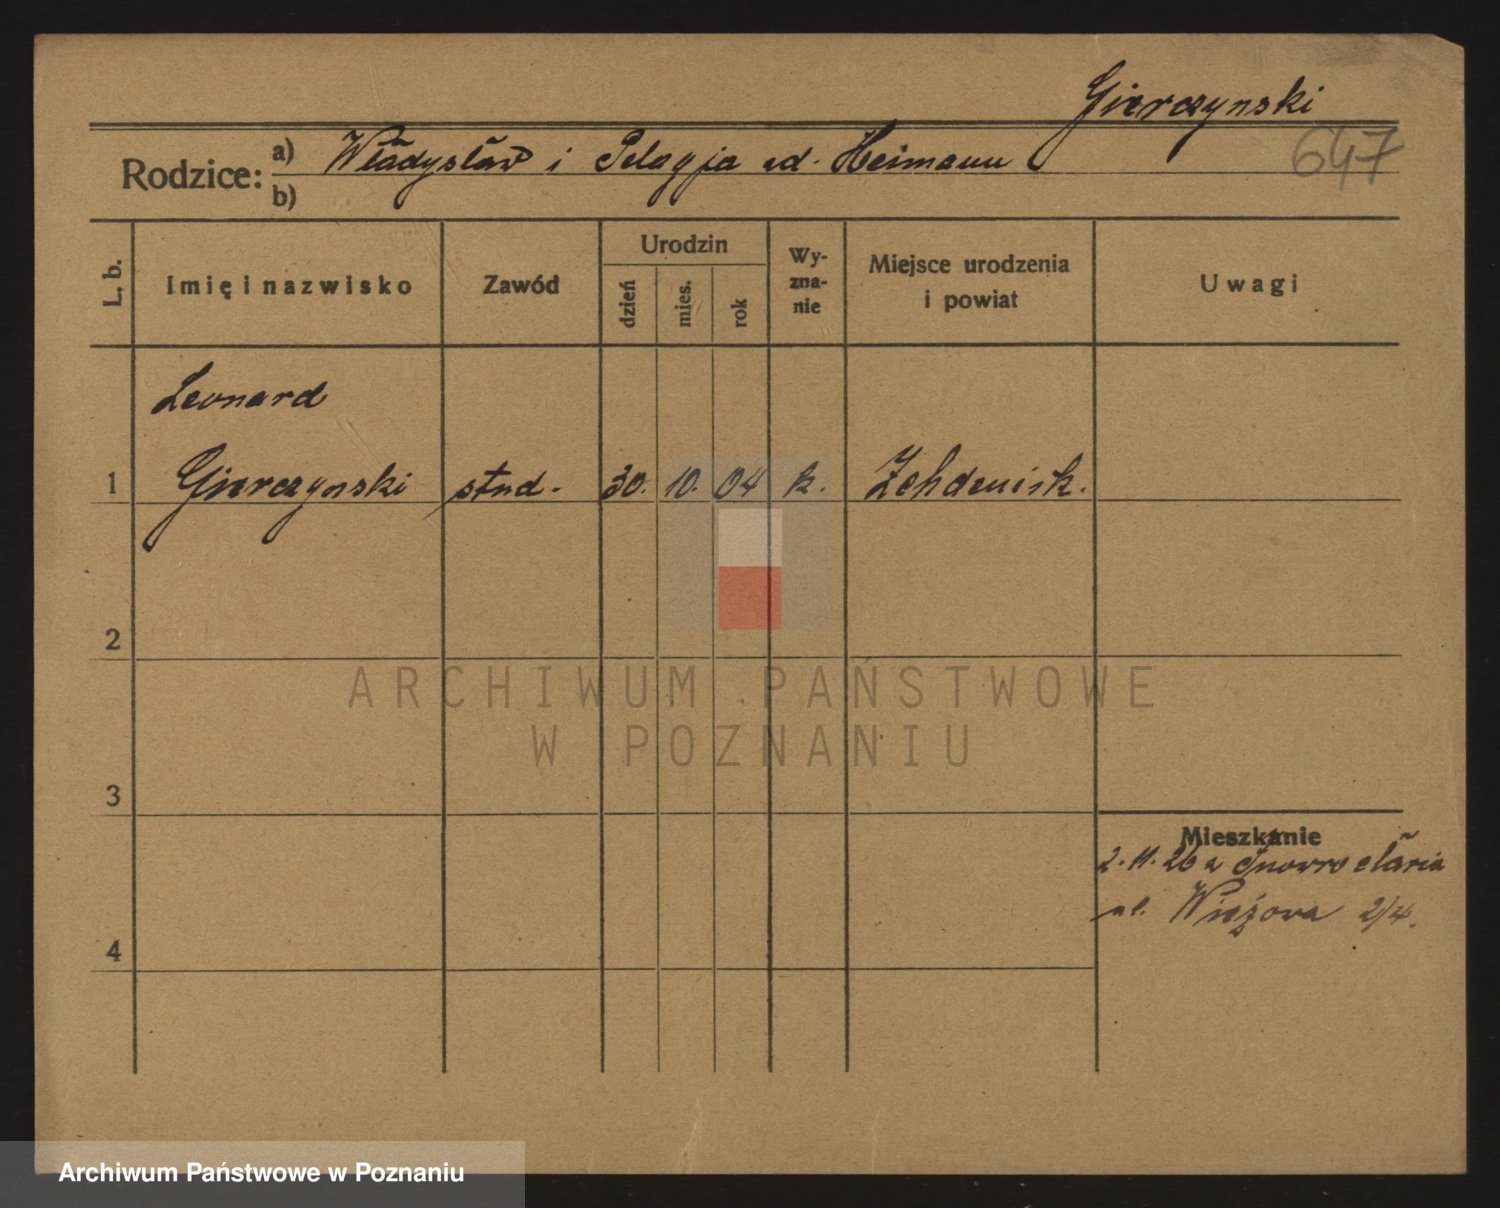 Gierczynski
647
Rodzice: a) Władysław i Pelagja ud. Heimann
b)
L. b.
Imię i nazwisko
Zawód
Urodzin
dzień
mies.
rok
Wy-
zna-
nie
Miejsce urodzenia
i powiat
Uwagi
Leonard
1 Gierczynski stud. 30. 10. 04 k. Zehdenick.
2
3
4
Mieszkanie
2. 11. 26 z Inowrocławia
ul. Wieżowa 2/4.
ARCHIWUM PAŃSTWOWE
W POZNANIU
Archiwum Państwowe w Poznaniu